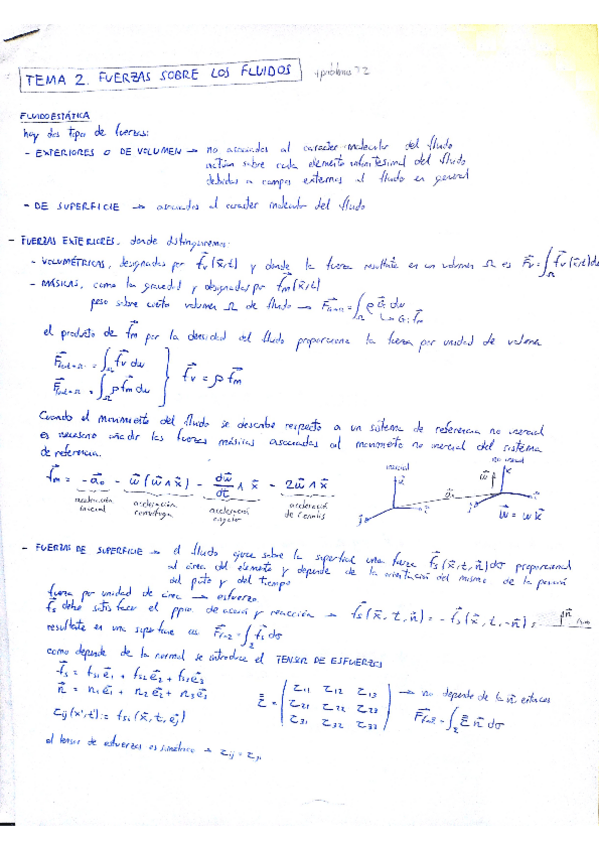 TEMA 2. FUERZAS SOBRE LOS FLUIDOS
FLUIDOESTÁTICA
hay dos tipos de fuerzas:
- EXTERIORES O DE VOLUMEN → no asociadas al caracter molecular del fluido
actúan sobre cada elemento infinitesimal del fluido
debidas a campos externos al fluido en general
- DE SUPERFICIE → asociadas al caracter molecular del fluido
- FUERZAS EXTERIORES, donde distinguiremos:
- VOLUMÉTRICAS, designadas por f⃗v(x⃗,t) y donde la fuerza resultante en un volumen Ω es F⃗v = ∫Ω f⃗v(x⃗,t)dω
- MÁSICAS, como la gravedad y designadas por f⃗m(x⃗,t)
peso sobre cierto volumen Ω de fluido → = ∫Ω ρ G⃗ dω
↳ G⃗: f⃗m
el producto de f⃗m por la densidad del fluido proporciona la fuerza por unidad de volumen
= ∫Ω f⃗v dω
= ∫Ω ρf⃗m dω } f⃗v = ρ f⃗m
Cuando el movimiento del fluido se describe respecto a un sistema de referencia no inercial
es necesario añadir las fuerzas másicas asociadas al movimiento no inercial del sistema
de referencia.
inercial
no inercial
f⃗m = -a⃗o - w⃗(w⃗∧x⃗) - dw⃗/dt ∧ x⃗ - 2w⃗∧x⃗
aceleración centrífuga
aceleración
aceleración de Coriolis
w⃗ = w k⃗
- FUERZAS DE SUPERFICIE → el fluido ejerce sobre la superficie una fuerza f⃗s(x⃗,t,n⃗)dσ proporcional
al área del elemento y depende de la orientación del mismo, de la posición
del pto y del tiempo
fuerza por unidad de área → esfuerzo
f⃗s debe satisfacer el ppio. de acción y reacción → f⃗s(x⃗,t,n⃗) = -f⃗s(x⃗,t,-n⃗)
resultante en una superficie es = ∫Σ f⃗s dσ
como depende de la normal se introduce el TENSOR DE ESFUERZOS
f⃗s = fs1 e⃗1 + fs2 e⃗2 + fs3 e⃗3
n⃗ = n1 e⃗1 + n2 e⃗2 + n3 e⃗3
τ = ( τ11 τ12 τ13
τ21 τ22 τ23
τ31 τ32 τ33 ) → no depende de la n⃗ entonces
= ∫Σ τ n⃗ dσ
τij(x⃗,t) := fsi(x⃗,t,e⃗j)
el tensor de esfuerzos es simétrico → τij = τji